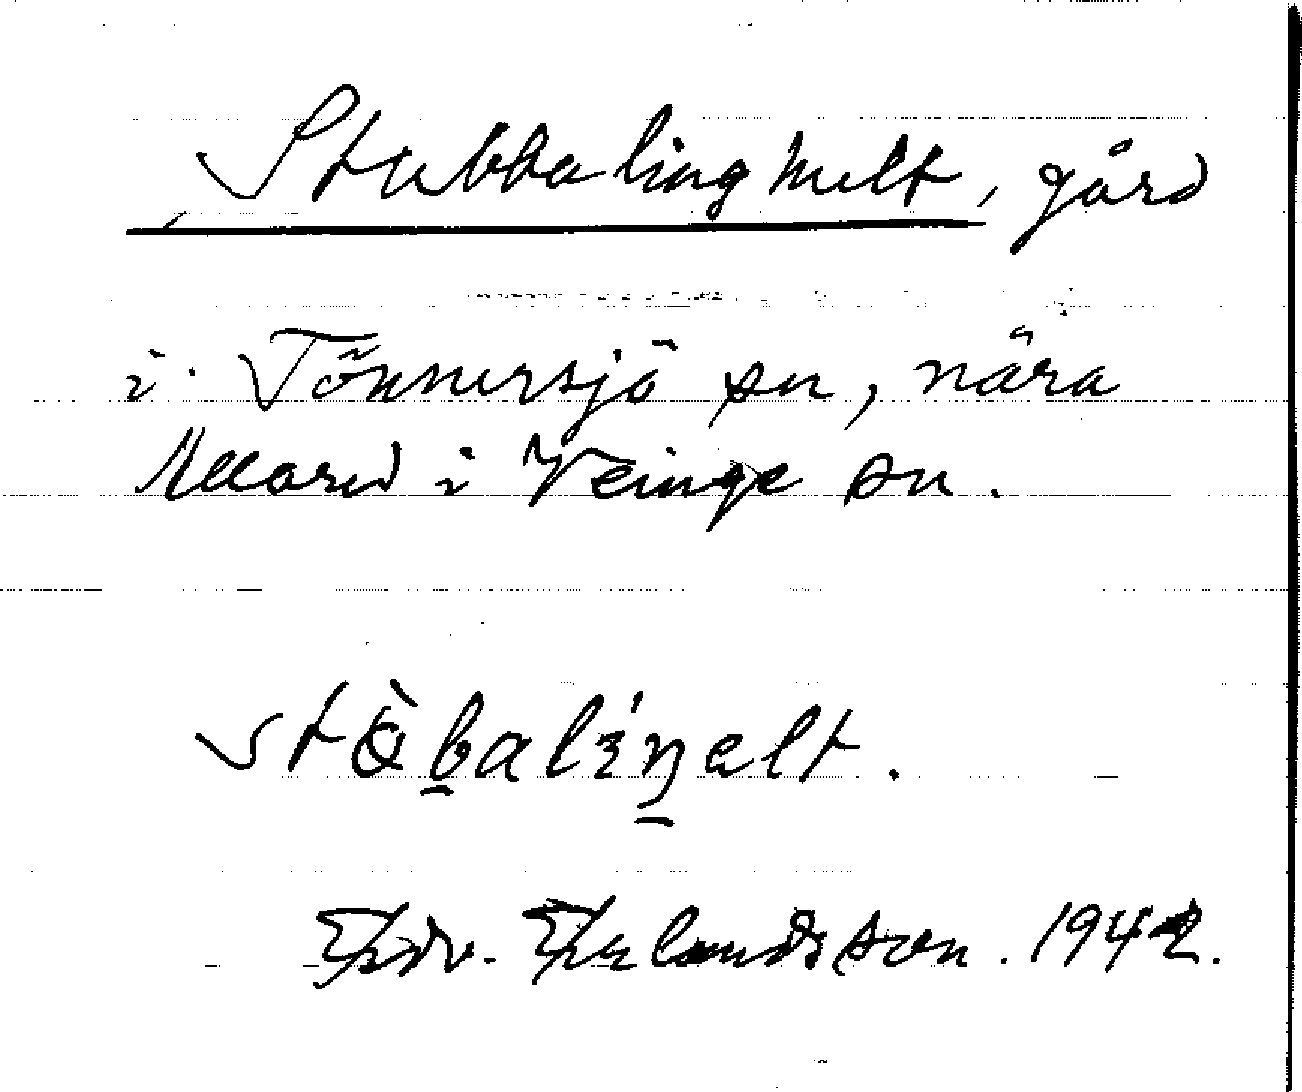 Stubbalinghult, gård
i Tönnersjö sn, nära
Meared i Veinge sn.
stòbalíŋelt.
Edv. Erlandsson. 1942.